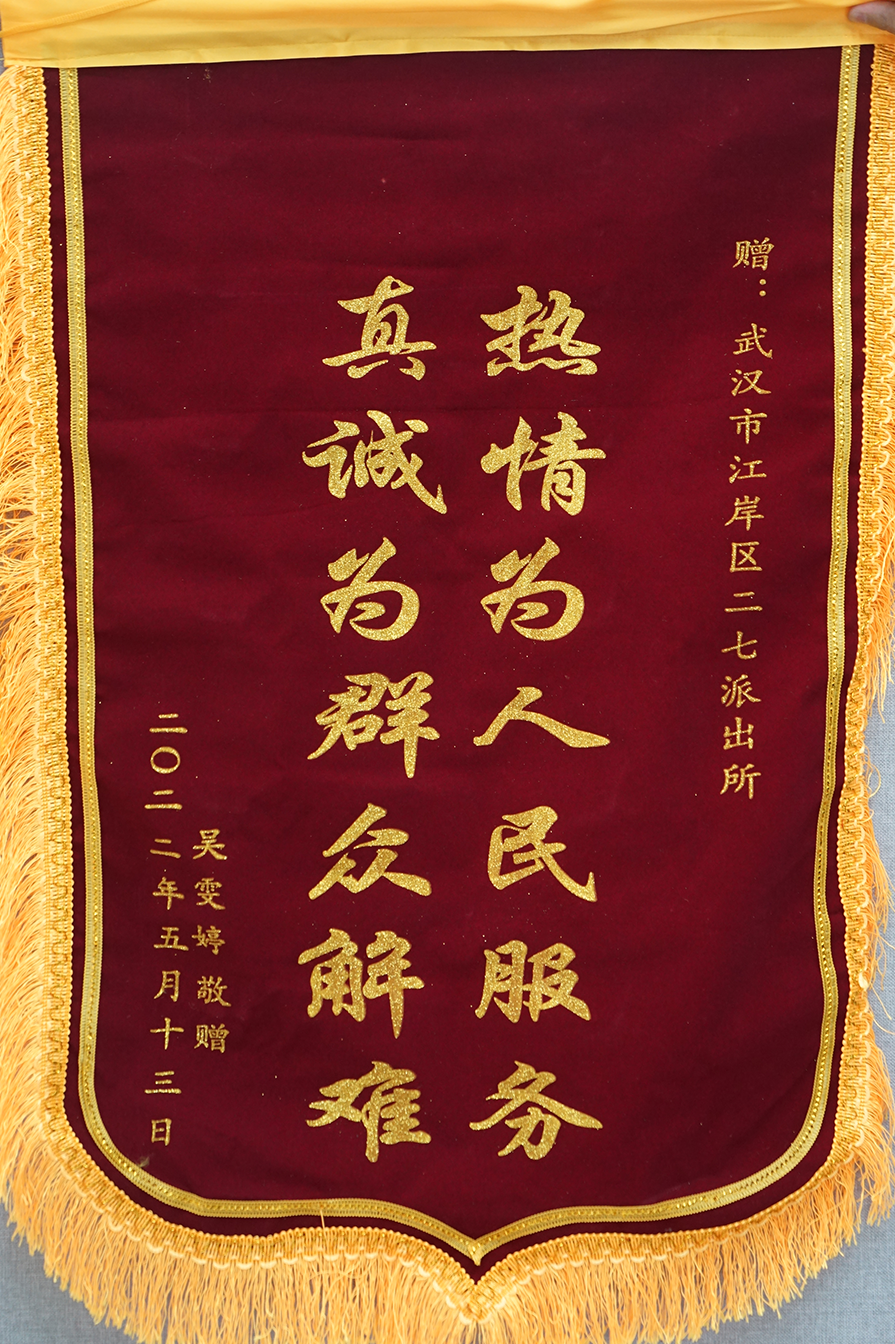 赠：武汉市江岸区二七派出所
热情为人民服务
真诚为群众解难
吴雯婷敬赠
二〇二二年五月十三日